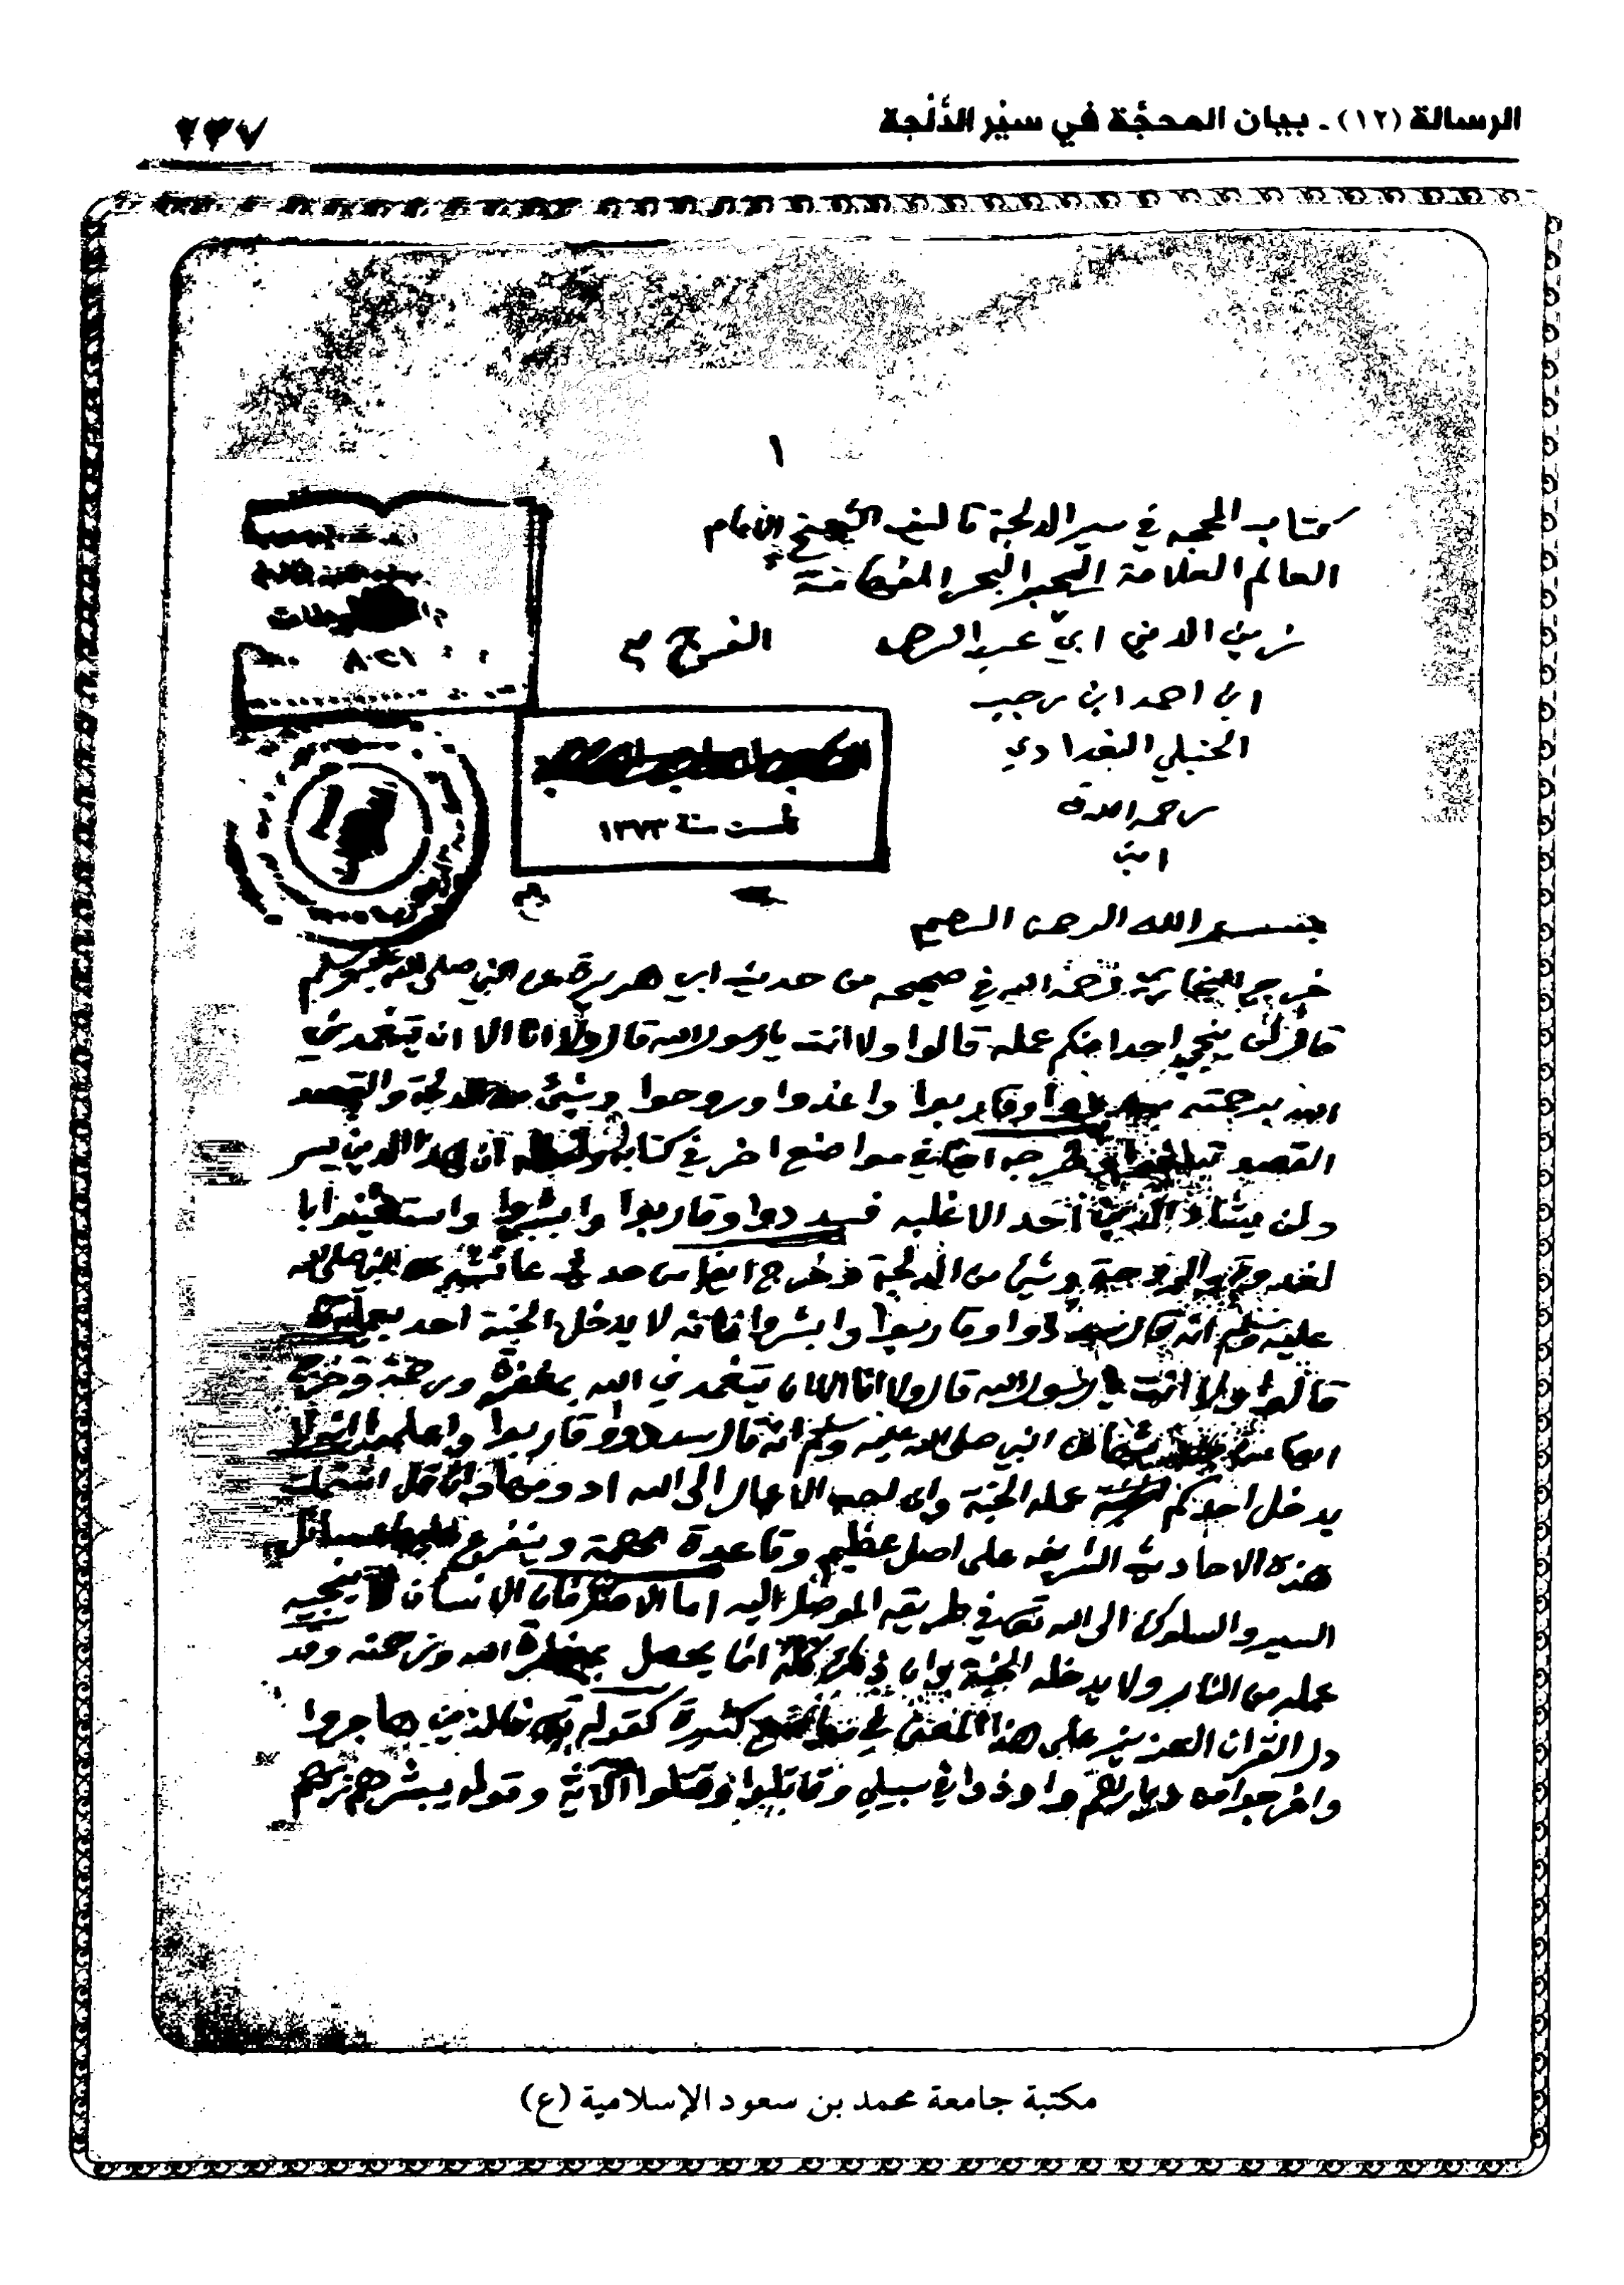 الرسالة (١٢) ـ بيان المحجّة في سيْر الدُّلْجة
٢٣٧
١
كتاب المحجه في سير الدلجة تاليف الشيخ الامام
العالم العلامة الحبر البحر الفهامة
زين الدين ابي عبد الرحمن الفرج
ابن احمد ابن رجب
الحنبلي البغدادي
رحمه الله
امين
٨٠٢١
سنة ١٣٧٣
بسم الله الرحمن الرحيم
خرج البخاري رحمه الله في صحيحه من حديث ابي هريرة عن النبي صلى الله عليه وسلم
قال لن ينجي احدا منكم عمله قالوا ولا انت يا رسول الله قال ولا انا الا ان يتغمدني
الله برحمته وقاربوا واغدوا وروحوا وشئ من الدلجة والقصد
القصد تبلغوا وخرجه ايضا في مواضع اخر في كتابه ان هذا الدين يسر
ولن يشاد الدين احد الا غلبه فسددوا وقاربوا وابشروا واستعينوا با
لغدوة والروحة وشئ من الدلجة وخرج ايضا من حديث عائشة عن النبي صلى الله
عليه وسلم انه قال سددوا وقاربوا وابشروا فانه لا يدخل الجنة احد بعمله
قالوا ولا انت يا رسول الله قال ولا انا الا ان يتغمدني الله بمغفرة ورحمة وخرج
ايضا عن النبي صلى الله عليه وسلم انه قال سددوا وقاربوا واعلموا انه لا
يدخل احدكم عمله الجنة وان احب الاعمال الى الله ادومها وان قل اشتملت
هذه الاحاديث الشريفه على اصل عظيم وقاعدة مهمة ويتفرع مسائل
السير والسلوك الى الله تعالى في طريقه الموصل اليه اما الاصل فان الانسان لا ينجيه
عمله من النار ولا يدخله الجنة وان ذلك كله انما يحصل بمغفرة الله ورحمته وقد
دل القران العزيز على هذا المعنى في مواضع كثيرة كقوله فالذين هاجروا
واخرجوا من ديارهم واوذوا في سبيلي وقاتلوا وقتلوا الآية وقوله يبشرهم ربهم
مكتبة جامعة محمد بن سعود الإسلامية (ع)